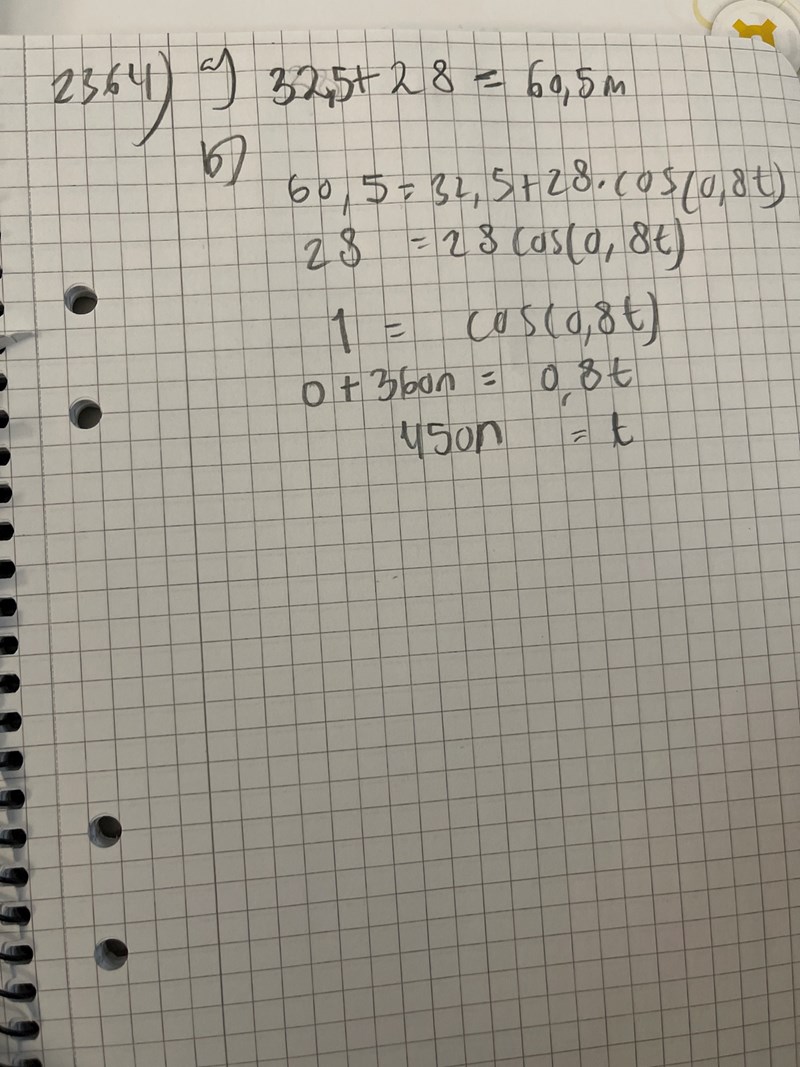 2364) a) 32,5+28 = 60,5m
b)
60,5=32,5+28·cos(0,8t)
28 =28cos(0,8t)
1 = cos(0,8t)
0+360n = 0,8t
450n = t